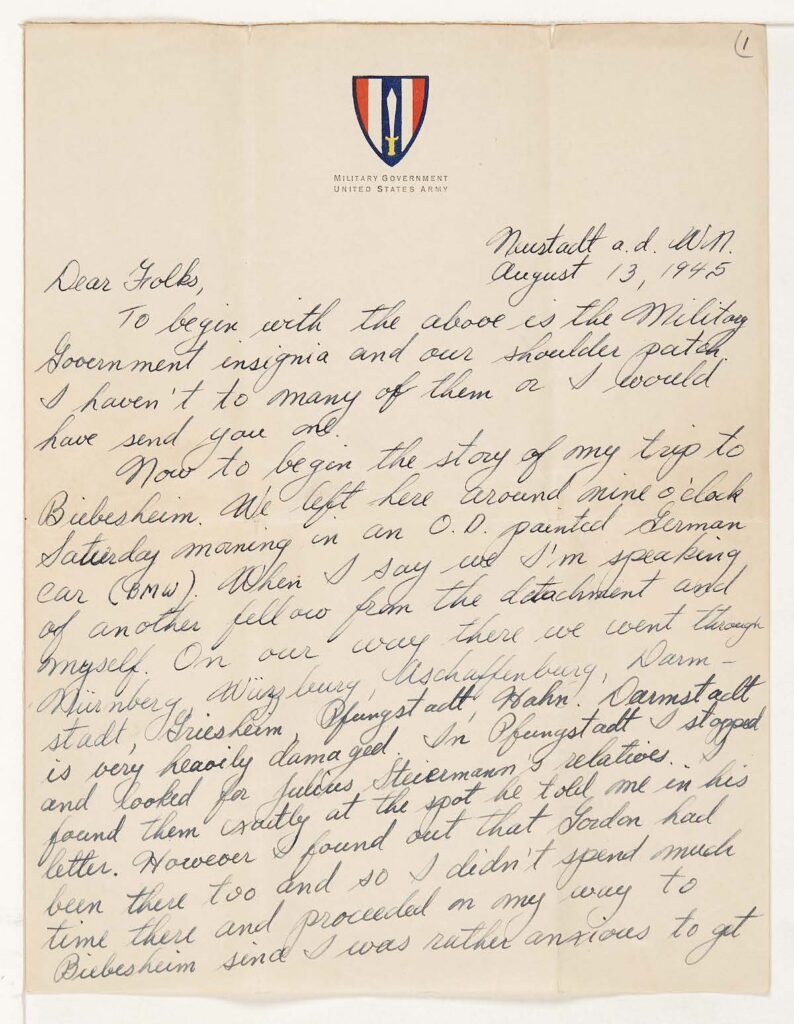 1
MILITARY GOVERNMENT
UNITED STATES ARMY
Neustadt a.d. W.N.
August 13, 1945
Dear Folks,
To begin with the above is the Military
Government insignia and our shoulder patch.
I haven't to many of them or I would
have send you one.
Now to begin the story of my trip to
Biebesheim. We left here around nine o'clock
Saturday morning in an O.D. painted German
car (BMW). When I say we I'm speaking
of another fellow from the detachment and
myself. On our way there we went through
Nürnberg, Würzburg, Aschaffenburg, Darm-
stadt, Griesheim, Pfungstadt, Hahn. Darmstadt
is very heavily damaged. In Pfungstadt I stopped
and looked for Julius Steiermann's relatives. I
found them exactly at the spot he told me in his
letter. However I found out that Gordon had
been there too and so I didn't spend much
time there and proceeded on my way to
Biebesheim since I was rather anxious to get